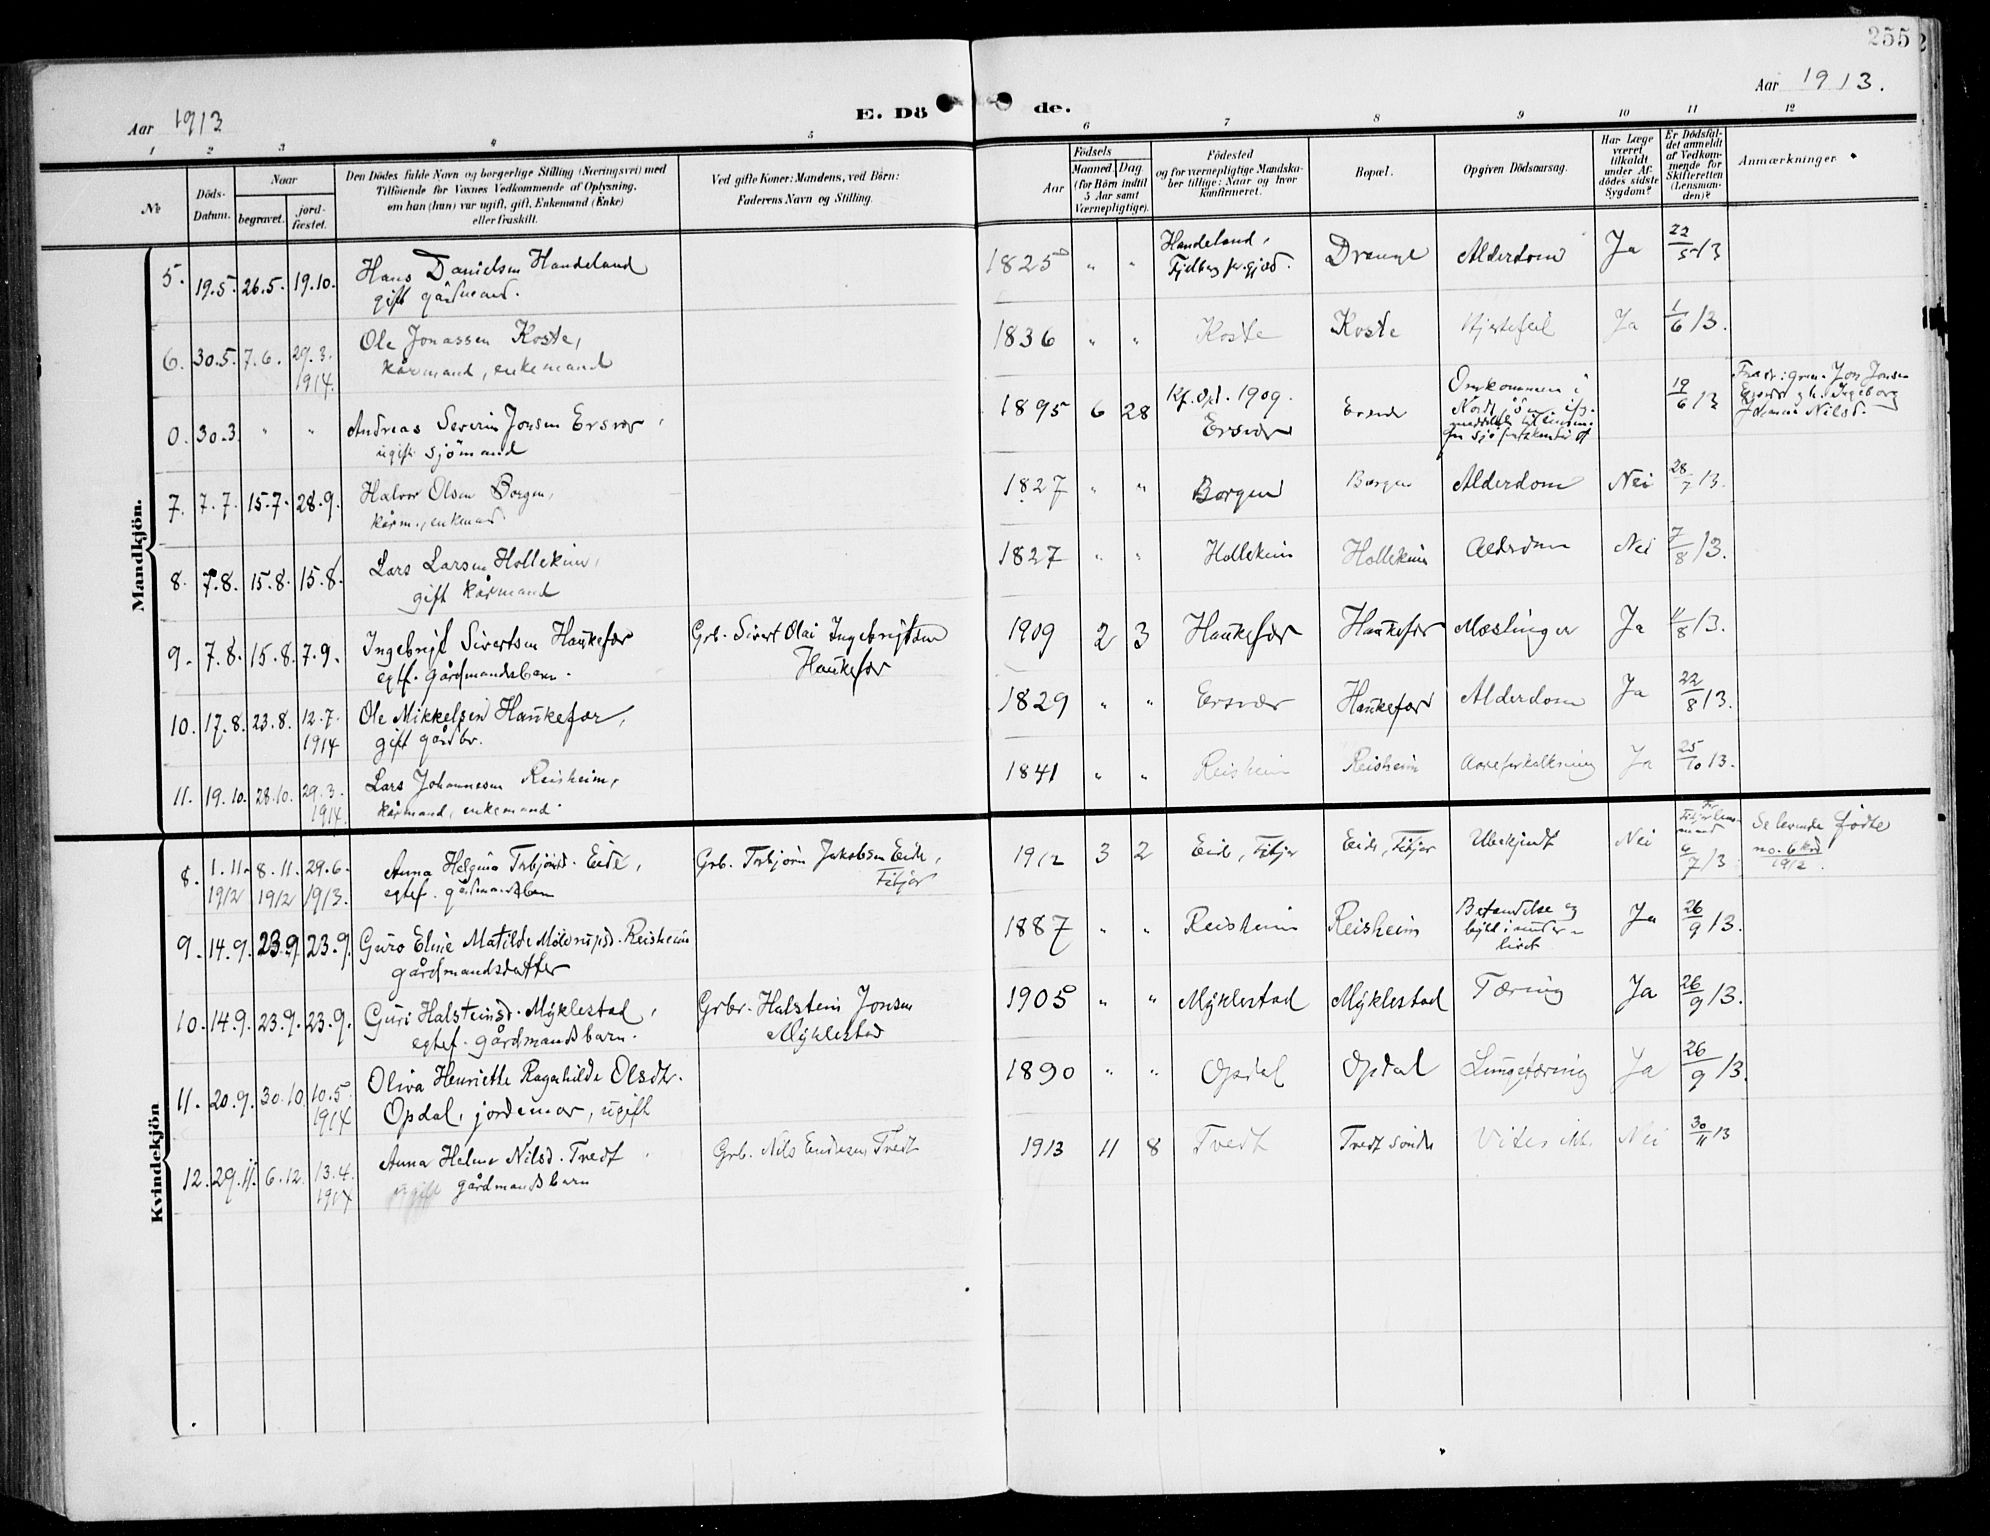 255
Aar 1913
E. Dö de.
Aar 1913.
1 2 3 4 5 6 7 8 9 10 11 12
№
Döds-
Datum.
Naar
begravet.
jord-
fæstet.
Den Dödes fulde Navn og borgerlige Stilling (Næringsvei) med
Tilföiende for Voxnes Vedkommende af Oplysning,
om han (hun) var ugift, gift, Enkemand (Enke)
eller fraskilt.
Ved gifte Koner: Mandens, ved Börn:
Faderens Navn og Stilling.
Födsels
Aar
Maaned. Dag.
(for Börn indtil
5 Aar samt
Værnepligtige).
Födested
og for værnepligtige Mandska-
ber tillige: Naar og hvor
konfirmeret.
Bopæl.
Opgiven Dödsaarsag.
Har Læge
været
tilkaldt
under Af-
dödes sidste
Sygdom?
Er Dödsfal-
det anmeldt
af Vedkom-
mende for
Skifteretten
(Lensman-
den)?
Anmærkninger.
Mandkjön.
5. 19.5. 26.5. 19.10. Hans Danielsen Handeland
gift gårdmand.
1825 " " Handeland,
Fjelberg
Alderdom Ja 22/5 13
6. 30.5. 7.6. 29.3.
1914.
Ole Jonassen Koste,
kårmand, enkemand
1836 " " Koste Koste Hjertefeil Ja 1/6 13.
0. 30.3. " " Andreas Severin Jonsen Ersvær,
ugift sjömand
1895 6 28 Kf. 1909.
Ersvær Ersvær Omkommen i
Nordsjöen
19/6 13
7. 7.7. 15.7. 28.9. Halvor Olsen Borgen,
kårm., enkemd.
1827 " " Borgen Borgen Alderdom Nei 28/7 13.
8. 7.8. 15.8. 15.8. Lars Larsen Hollekim,
gift kårmand
1827 " " Hollekim Hollekim Alderdom Nei 7/8 13.
9. 7.8. 15.8. 7.9. Ingebrigt Sivertsen Haukefær
egtf. gårdmandsbarn.
Grb. Sivert Olai Ingebrigtsen
Haukefær
1909 2 3 Haukefær Haukefær Mæslinger Ja 11/8 13.
10. 17.8. 23.8. 12.7.
1914
Ole Mikkelsen Haukefær,
gift gårdbr.
1829 " " Ersvær Haukefær Alderdom Ja 22/8 13.
11. 19.10. 28.10. 29.3.
1914.
Lars Johannesen Reisheim,
kårmand, enkemand.
1841 " " Reisheim Reisheim Aareforkalkning Ja 25/10 13.
Kvindekjön
8. 1.11. 8.11. 29.6.
1912 1912 1913.
Anna Helgina Torbjörnsd. Eide,
egtef. gårdmandsbarn
Grb. Torbjörn Jakobsen Eide,
Fitjar
1912 3 2 Eide, Fitjar Eide, Fitjar Ubekjendt Nei
Se levende födte
no. 6
1912.
9. 14.9. 23.9. 23.9. Guro Eline Matilde Reisheim
gårdmandsdatter
1887 " " Reisheim Reisheim Betændelse og
byld i under-
livet
Ja 26/9 13.
10. 14.9. 23.9. 23.9. Guri Halsteinsd. Myklestad,
egtef. gårdmandsbarn.
Grbr. Halstein Jonsen
Myklestad
1905 " " Myklestad Myklestad Tæring Ja 26/9 13.
11. 20.9. 30.10. 10.5.
1914
Oliva Henriette Ragnhilde Olsdtr.
Opdal, jordemor, ugift
1890 " " Opdal Opdal Lungetæring Ja 26/9 13.
12. 29.11. 6.12. 13.4.
1914
Anna Helene Nilsd. Tvedt
ugift gårdmandsbarn
Grb. Nils Endresen Tvedt
1913 11 8 Tvedt Tvedt söndre Vites ikke. Nei 30/11 13